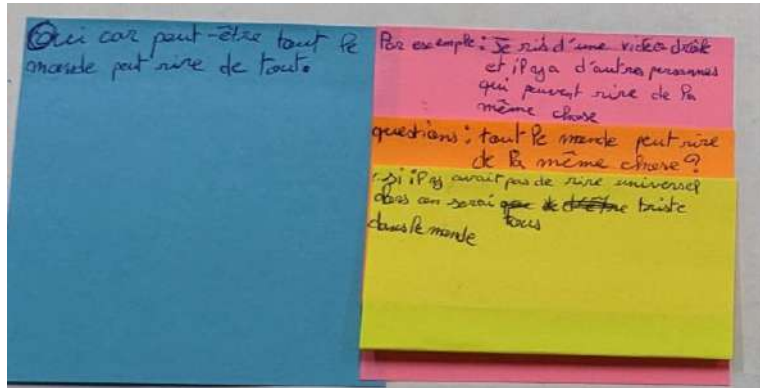 Oui car peut-être tout le
monde peut rire de tout.
Par exemple : Je ris d'une video drôle
et il y a d'autres personnes
qui peuvent rire de la
même chose
questions : tout le monde peut rire
de la même chose ?
si il y avait pas de rire universel
alors on serai tous triste
dans le monde